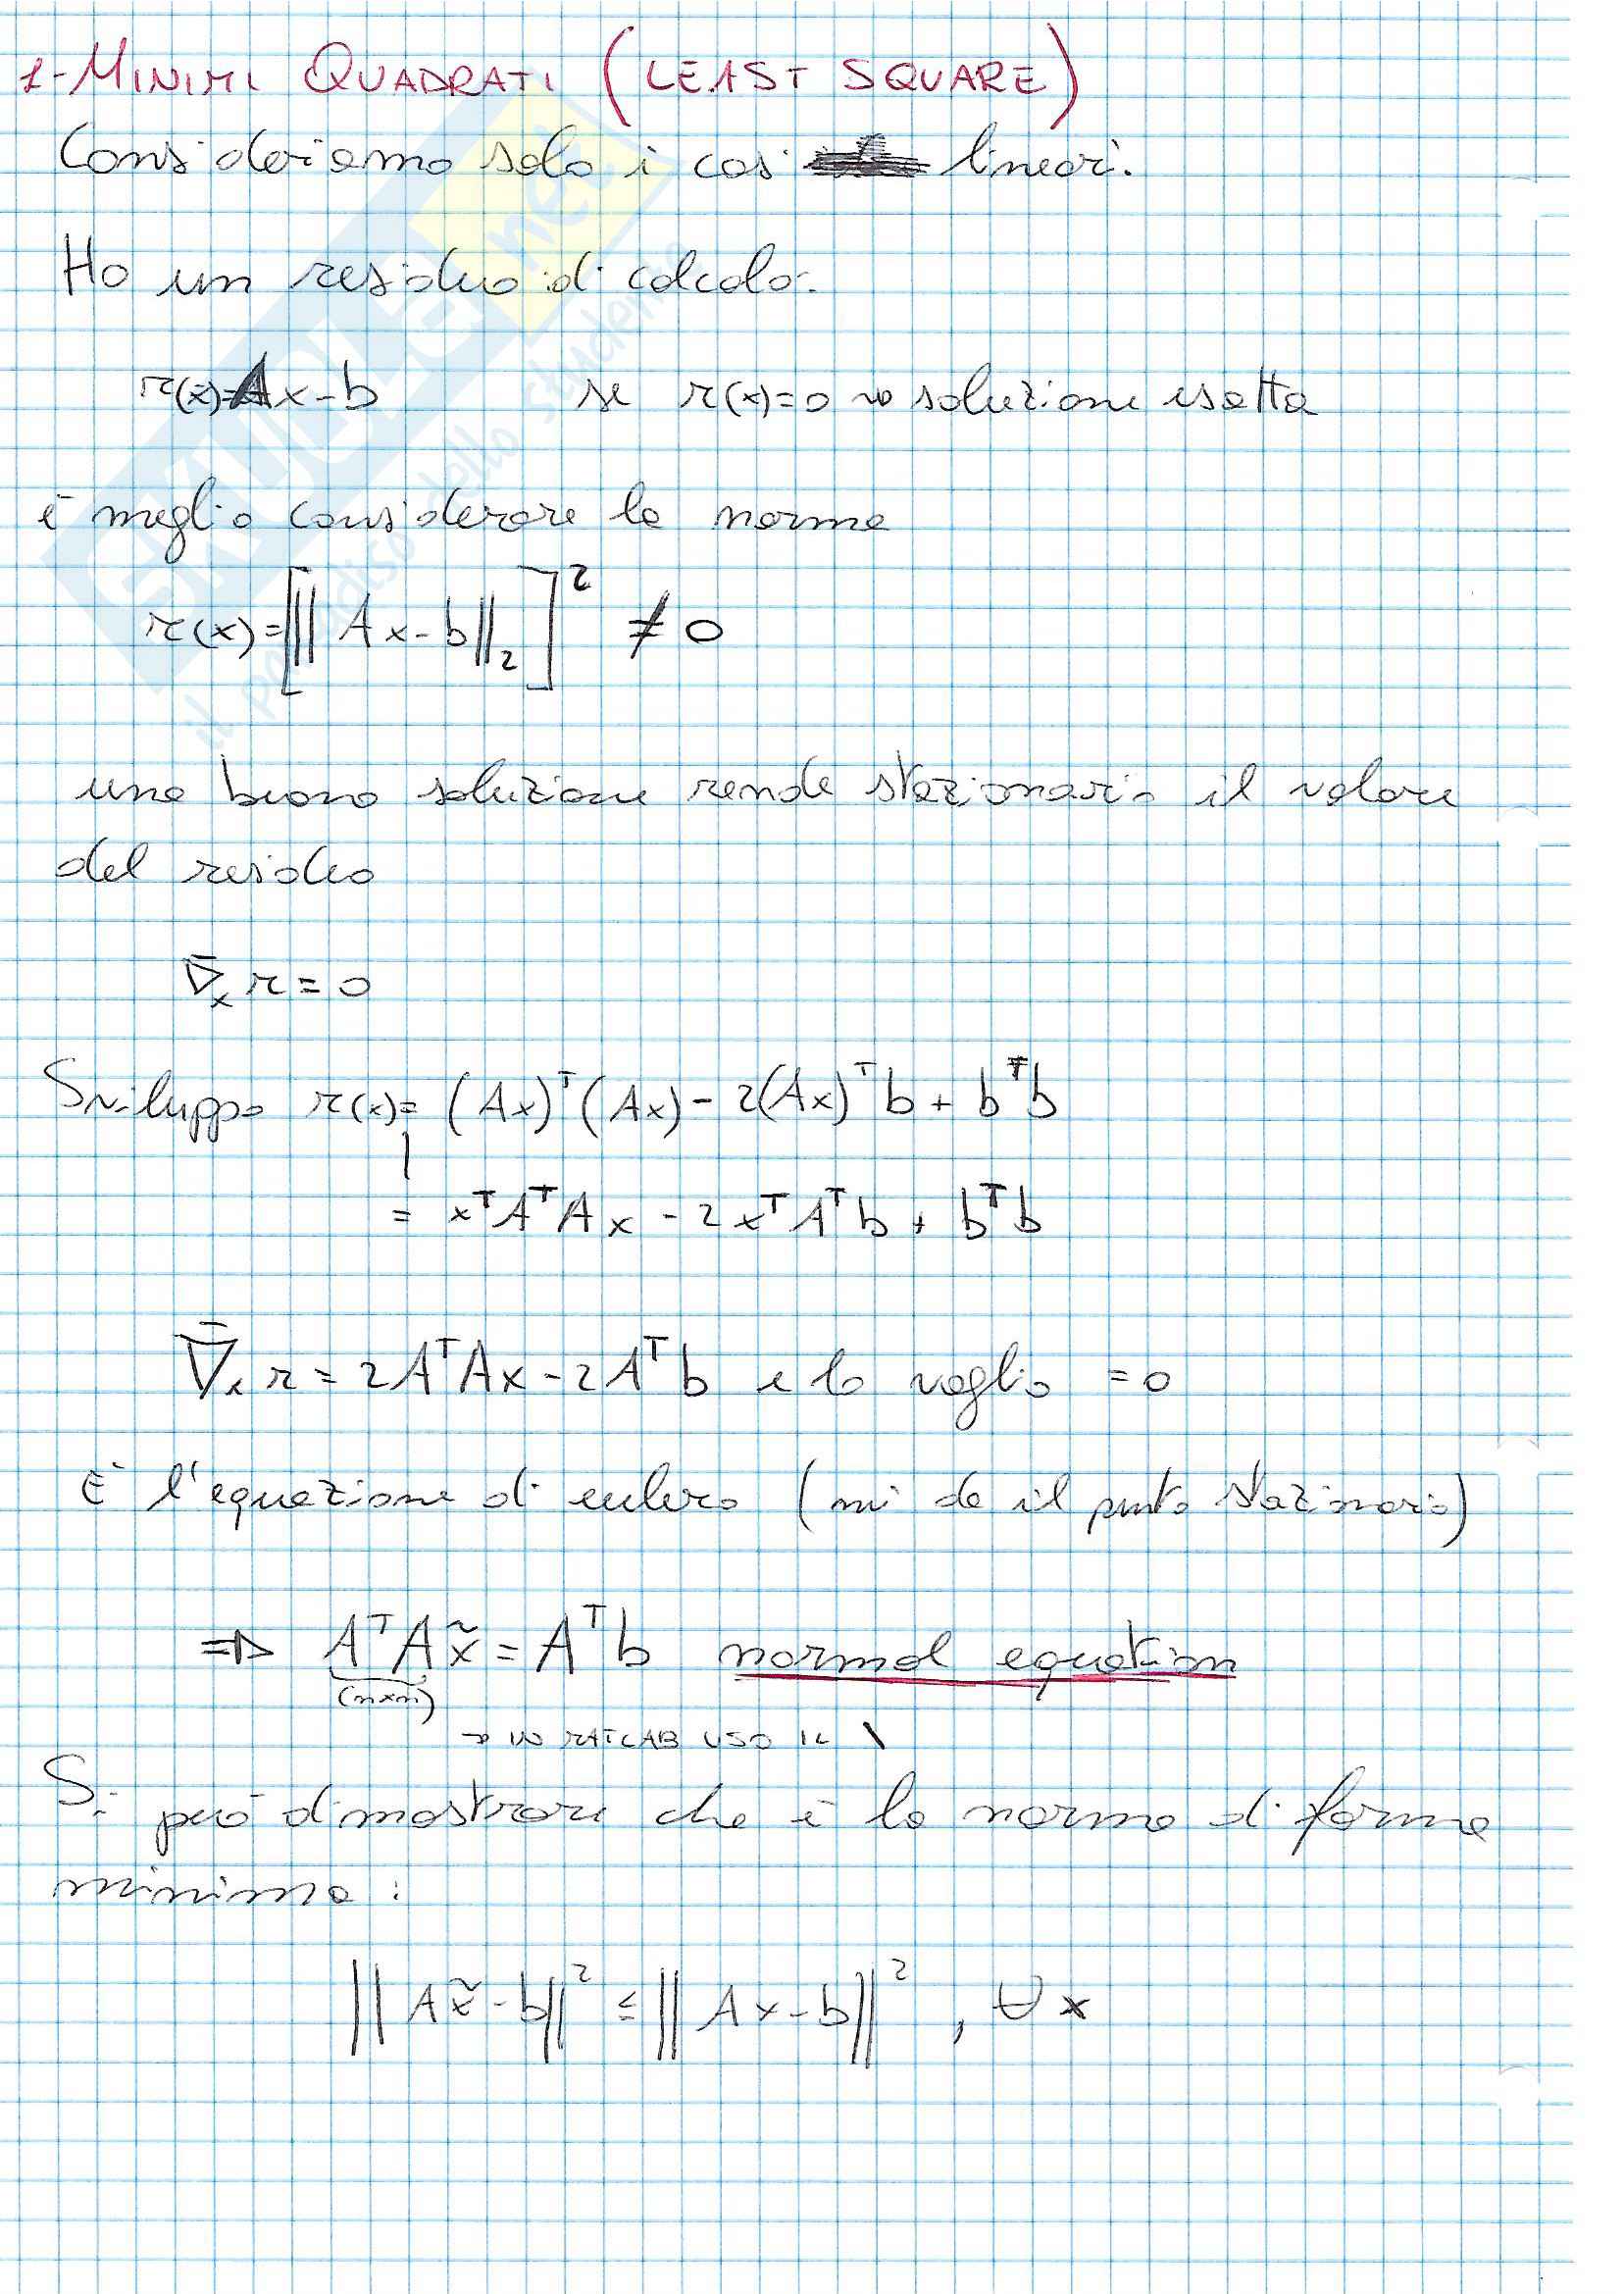 1-MINIMI QUADRATI (LEAST SQUARE)
Consideriamo solo i casi lineari.
Ho un residuo di calcolo.
r(x)=Ax-b se r(x)=0 → soluzione esatta
è meglio considerare la norma
r(x)=[||Ax-b||₂]² ≠ 0
una buona soluzione rende stazionario il valore
del residuo
∇̄ₓ r = 0
Sviluppo r(x)= (Ax)ᵀ(Ax) - 2(Ax)ᵀb + bᵀb
= xᵀAᵀAx - 2xᵀAᵀb + bᵀb
∇̄ₓ r = 2AᵀAx - 2Aᵀb e lo voglio =0
È l'equazione di eulero (mi da il punto stazionario)
⇒ AᵀAx̃ = Aᵀb normal equation
(n×n)
→ IN MATLAB USO IL \
Si può dimostrare che è la norma di forma
minima:
||Ax̃-b||² ≤ ||Ax-b||² , ∀x
SKUOLA.net
il paradiso dello studente